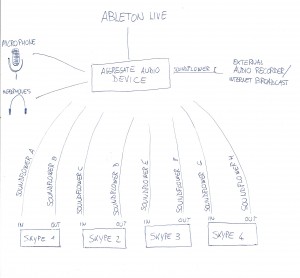 ABLETON LIVE
MICROPHONE
HEADPHONES
AGGREGATE AUDIO
DEVICE
SOUNDFLOWER I
EXTERNAL
AUDIO RECORDER/
INTERNET BROADCAST
SOUNDFLOWER A
SOUNDFLOWER B
SOUNDFLOWER C
SOUNDFLOWER D
SOUNDFLOWER E
SOUNDFLOWER F
SOUNDFLOWER G
SOUNDFLOWER H
IN OUT IN OUT IN OUT IN OUT
SKYPE 1 SKYPE 2 SKYPE 3 SKYPE 4